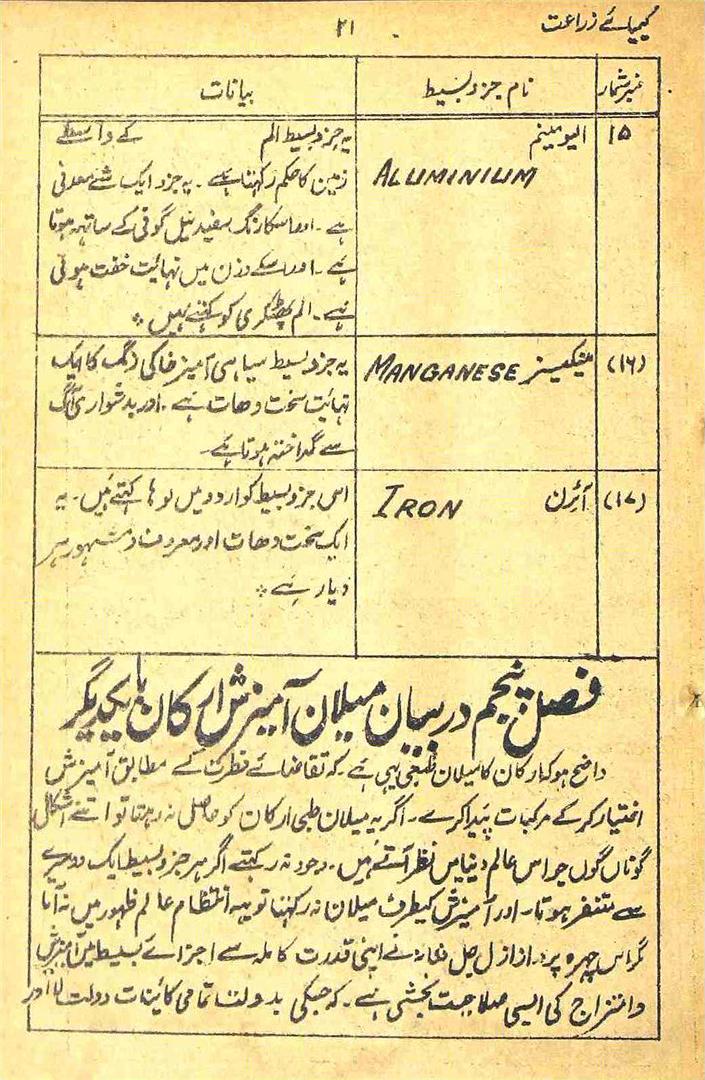 کیمیائے زراعت
۲۱
نمبر شمار نام جزو بسیط بیانات
۱۵ الیومینم ALUMINIUM
یہ جزو بسیط الم کے واسطے
زمین کا حکم رکھتا ہے ۔ یہ جزو ایک شے معدنی
ہے ۔ اور اسکا رنگ سفید نیل گونی کے ساتھہ ہوتا
ہے ۔ اور اسکے وزن میں نہائیت خفت ہوتی
ہے ۔ الم پھٹکری کو کہتے ہیں ۔
(۱۶) مینگنیز MANGANESE
یہ جزو بسیط سیاہی آمیز خاکی رنگ کا ایک
نہائیت سخت دھات ہے ۔ اور بدشواری آگ
سے گداختہ ہوتا ہے ۔
(۱۷) آئرن IRON
اس جزو بسیط کو اردو میں لوہا کہتے ہیں ۔ یہ
ایک سخت دھات اور معروف و مشہور ہر
دیار ہے ۔
فصل پنجم در بیان میلان آمیزش ارکان با یکدیگر
واضح ہو کہ ارکان کا میلان طبعی یہی ہے ۔ کہ تقاضائے فطرت کے مطابق آمیزش
اختیار کر کے مرکبات پیدا کرے ۔ اگر یہ میلان طبی ارکان کو حاصل نہ رہتا تو اتنے اشکال
گوناں گوں جو اس عالم دنیا میں نظر آتے ہیں ۔ وجود نہ رکہتے اگر ہر جزو بسیط ایک دوسرے
سے متنفر ہوتا ۔ اور آمیزش کیطرف میلان نہ رکہتا تو یہہ انتظام عالم ظہور میں نہ آتا
مگر اس چہرہ پرداز ازل جل نے اپنی قدرت کاملہ سے اجزائے بسیط میں آمیزش
و امتزاج کی ایسی صلاحیت بخشی ہے ۔ کہ جسکی بدولت تمامی کائینات دولت اور